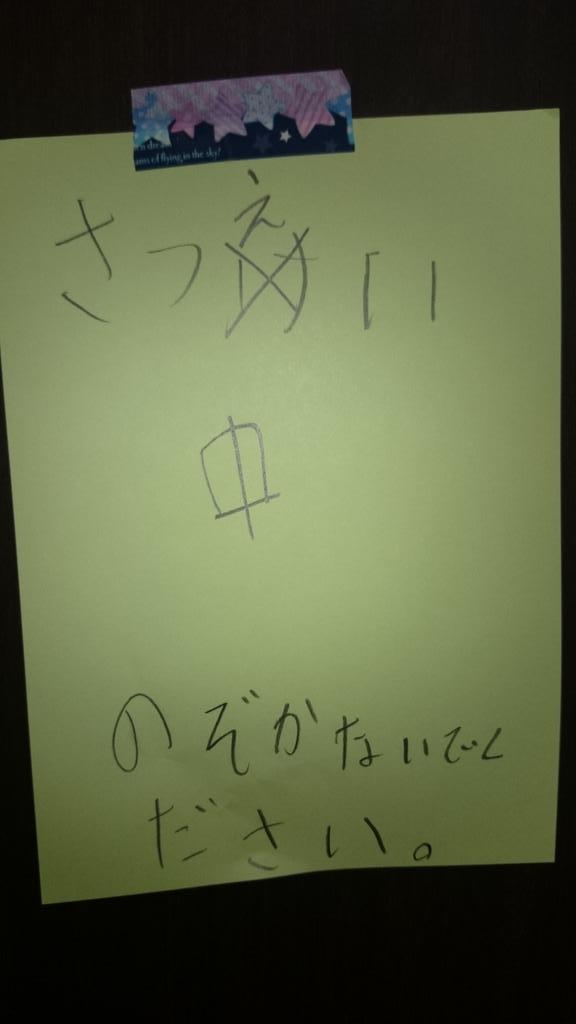 n dre
ams of flying in the sky?
さつえい
中
のぞかないでく
ださい。